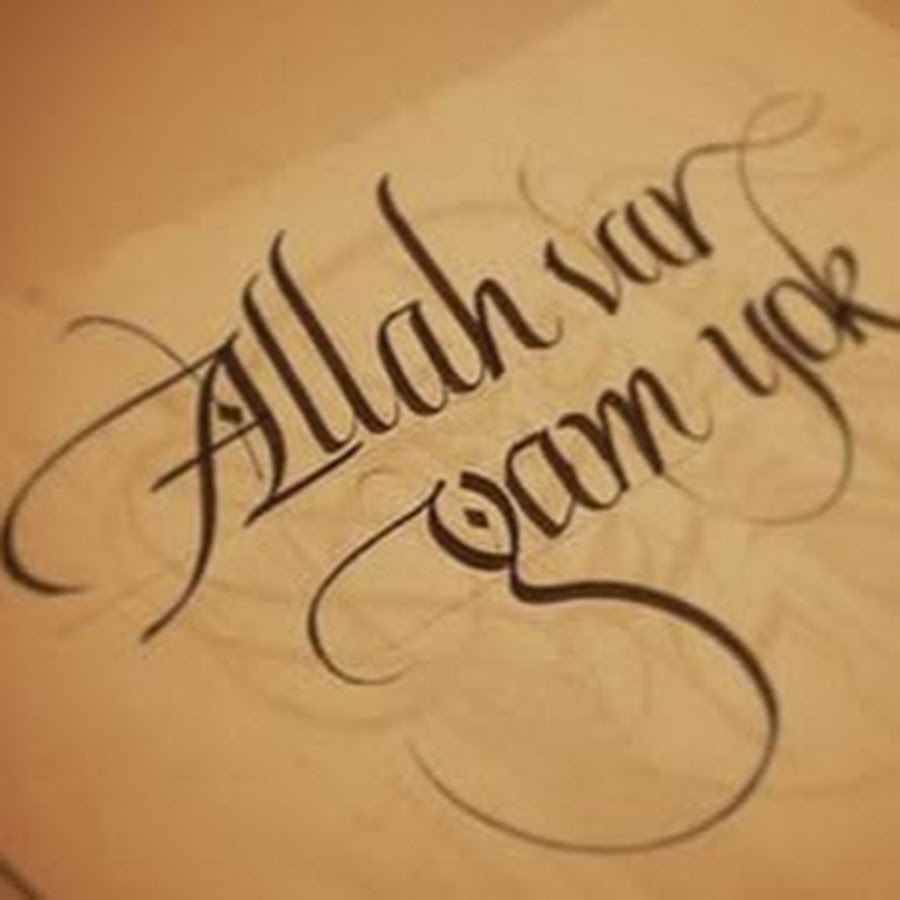 Allah var
gam yok